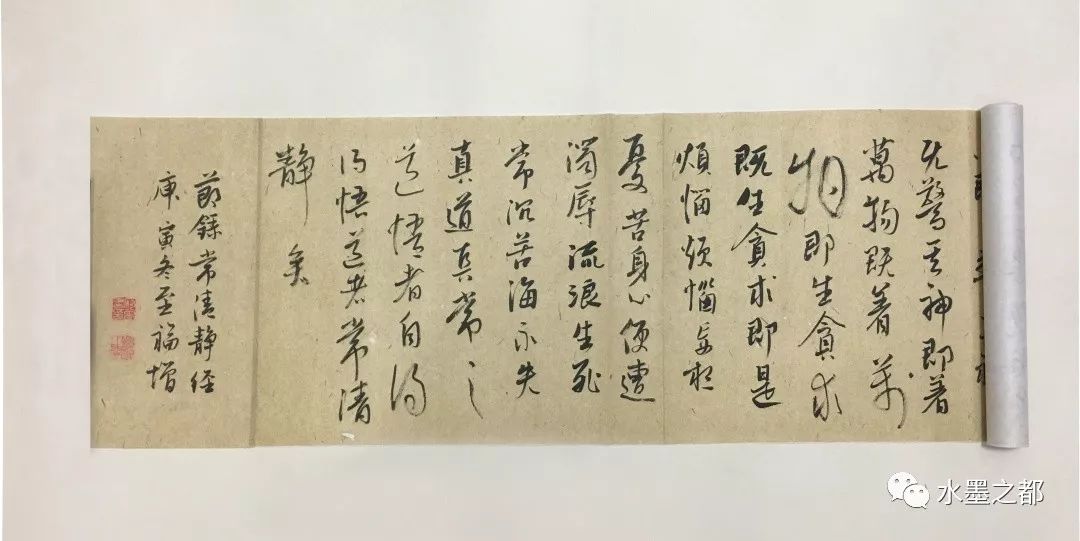 既驚其神即著
萬物既著萬
物即生貪求
既生貪求即是
煩惱煩惱妄想
憂苦身心便遭
濁辱流浪生死
常沉苦海永失
真道真常之
道悟者自得
得悟道者常清
靜矣
節錄常清靜經
庚寅冬至福增
水墨之都